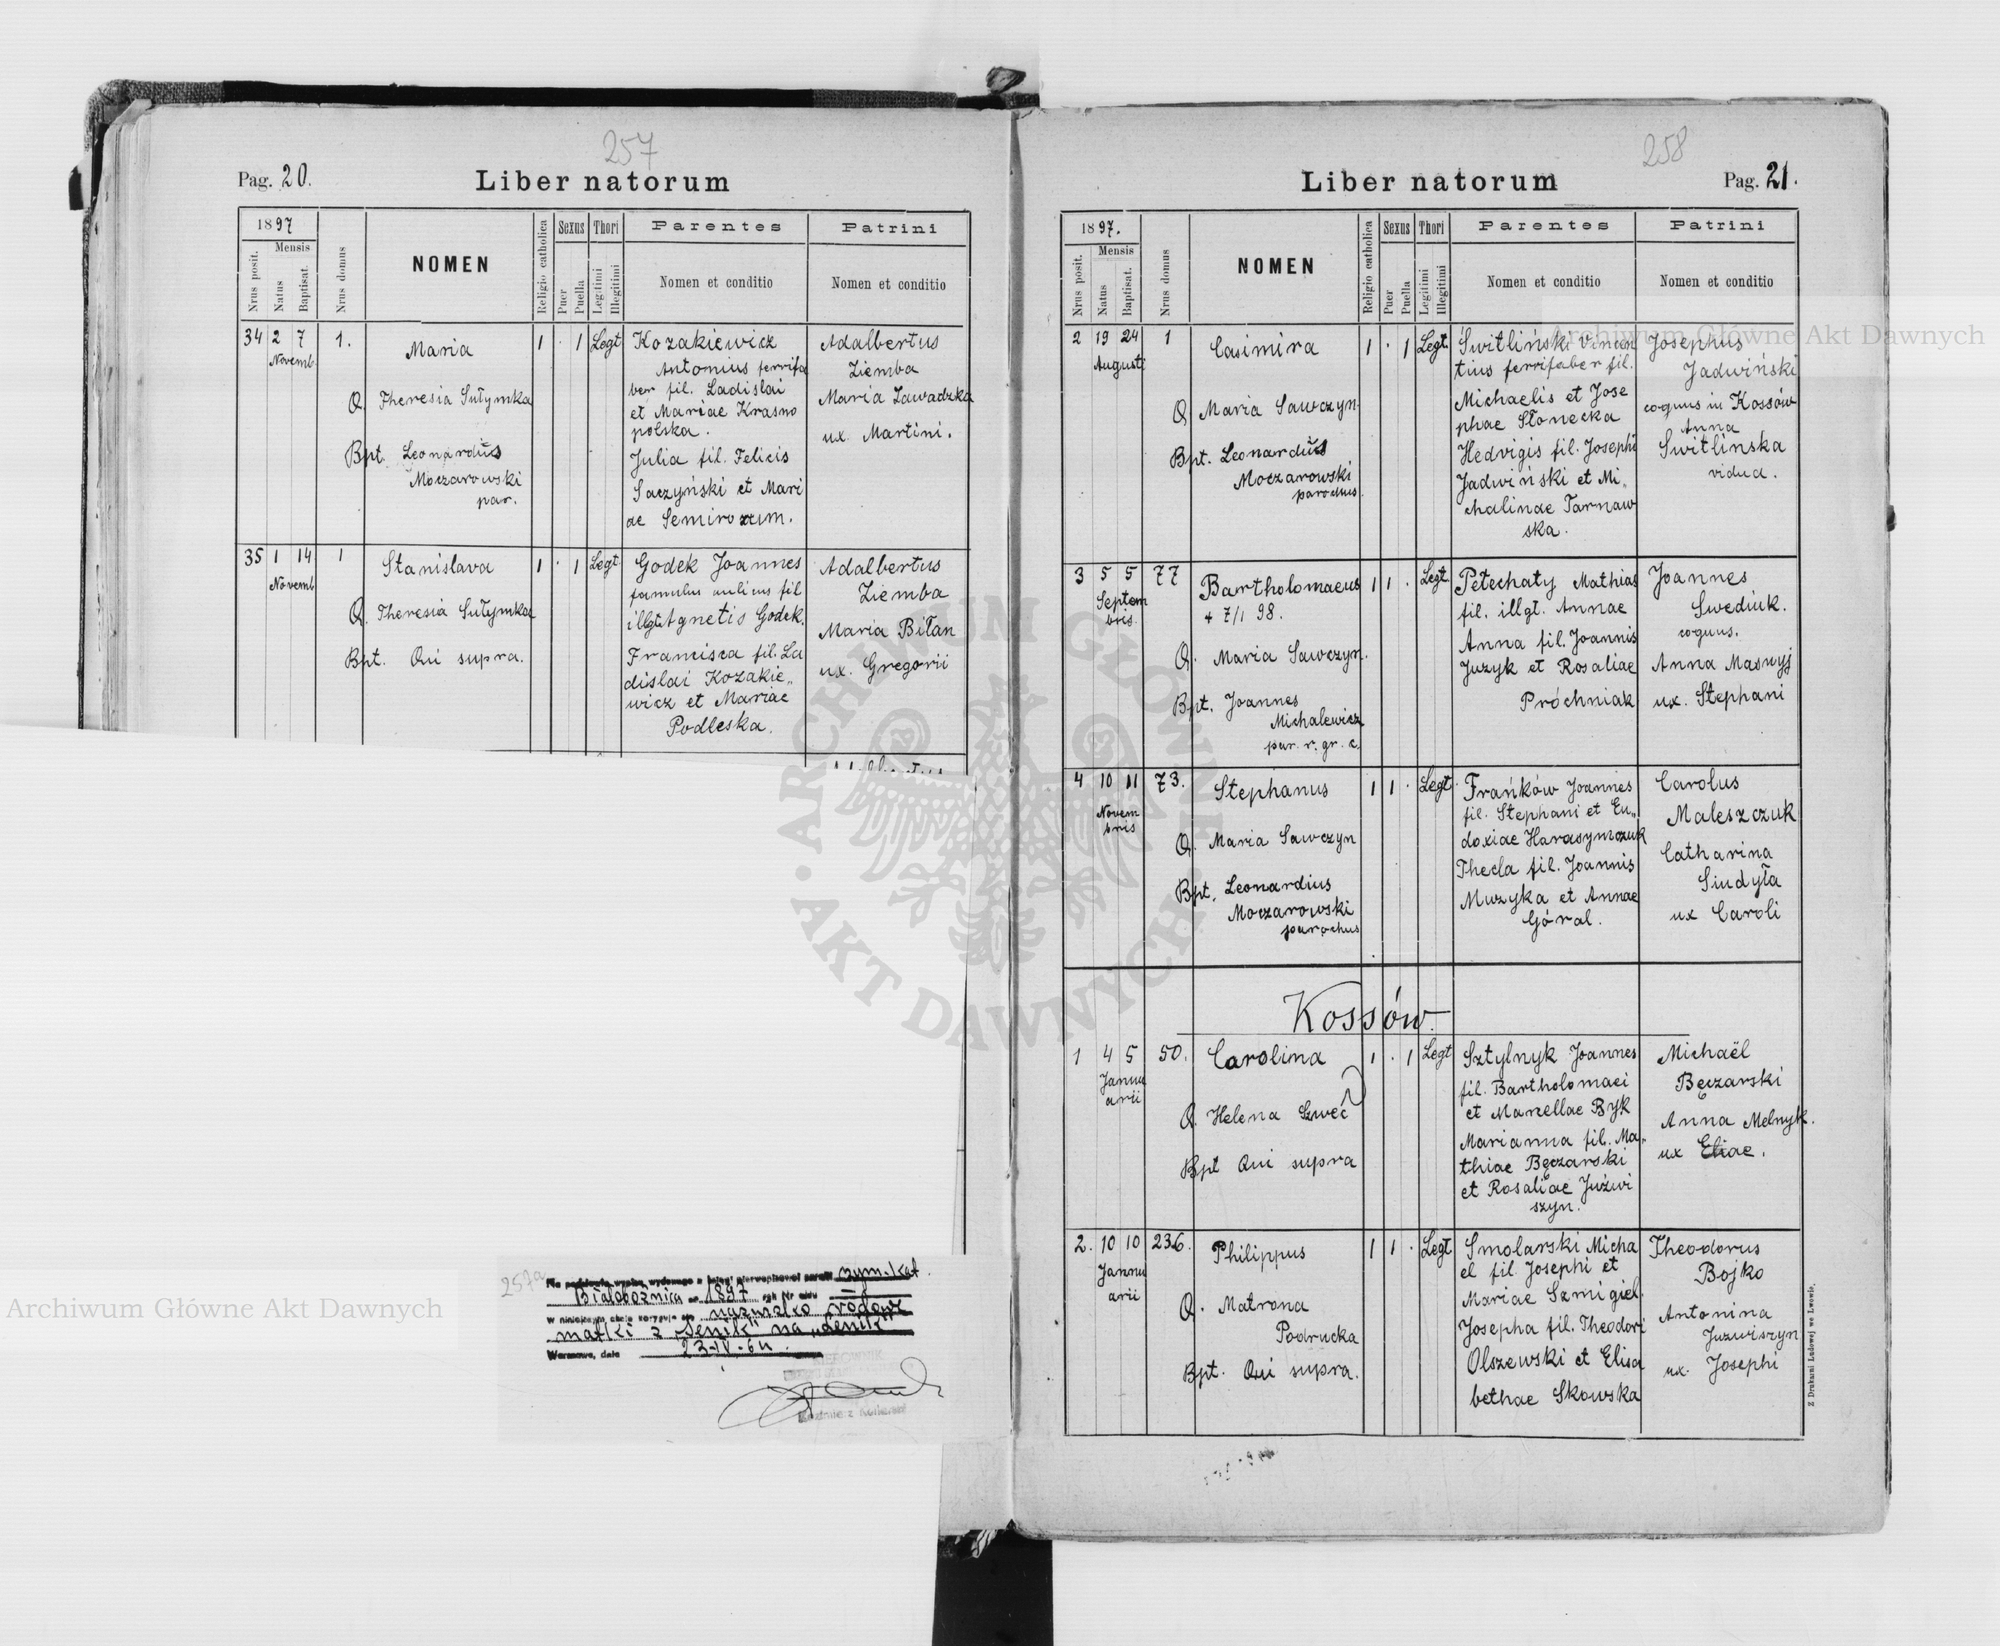 257
Pag. 20.
Liber natorum
1897
Nrus posit.
Mensis
Natus
Baptisat.
Nrus domus
NOMEN
Religio catholica
Sexus
Puer
Puella
Thori
Legitimi
Illegitimi
Parentes
Nomen et conditio
Patrini
Nomen et conditio
34 2 7 1.
Novemb.
Maria
1 . 1 Legt
Q. Theresia Sułymka
Bpt. Leonardus
Moczarowski
par.
Kozakiewicz
Antonius ferrifa
ber fil. Ladislai
et Mariae Krasno
polska.
Julia fil. Felicis
Saczyński et Mari
ae Semirozum.
Adalbertus
Ziemba
Maria Zawadzka
ux. Martini.
35 1 14 1
Novemb
Stanislava
1 . 1 Legt
Q. Theresia Sułymka
Bpt. Qui supra.
Godek Joannes
famulus aulicus fil
illgt Agnetis Godek.
Francisca fil. La
dislai Kozakie„
wicz et Mariae
Podleska.
Adalbertus
Ziemba
Maria Biłan
ux. Gregorii
257a
Na podstawie wypisu wydanego z księgi pierwopisowej parafii rzym.-kat.
Białobożnica 1897
w niniejszym akcie koryguje się nazwisko rodowe
matki z „Senik" na „Denik"
Warszawa, dnia 23-IV-64.
KIEROWNIK
258
Liber natorum
Pag. 21.
1897.
Nrus posit.
Mensis
Natus
Baptisat.
Nrus domus
NOMEN
Religio catholica
Sexus
Puer
Puella
Thori
Legitimi
Illegitimi
Parentes
Nomen et conditio
Patrini
Nomen et conditio
2 19 24 1
Augusti
Casimira
1 . 1 Legt.
Q. Maria Sawczyn.
Bpt. Leonardus
Moczarowski
parochus.
Świtliński Vincen
tius ferrifaber fil.
Michaelis et Jose
phae Słonecka
Hedvigis fil. Josephi
Jadwiński et Mi„
chalinae Tarnaw
ska.
Josephus
Jadwiński
coquus in Kossów
Anna
Switlinska
vidua.
3 5 5 77
Septem
bris.
Bartholomaeus
+ 7/1 98.
1 1 . Legt.
Q. Maria Sawczyn.
Bpt. Joannes
Michalewicz
par. r. gr. c.
Petechaty Mathias
fil. illgt. Annae
Anna fil. Joannis
Juzyk et Rosaliae
Próchniak
Joannes
Swediuk.
coquus.
Anna Masnyj
ux. Stephani
4 10 11 73.
Novem
bris
Stephanus
1 1 . Legt.
Q. Maria Sawczyn
Bpt. Leonardius
Moczarowski
parochus
Frańków Joannes
fil. Stephani et Eu„
doxiae Harasymczuk
Thecla fil. Joannis
Muzyka et Annae
Góral.
Carolus
Maleszczuk
Catharina
Siudyła
ux Caroli
Kossów.
1 4 5 50.
Janu
arii
Carolina
1 . 1 Legt
Q. Helena Szweć
Bpt Qui supra
Sztylnyk Joannes
fil. Bartholomaei
et Marzellae Byk
Marianna fil. Ma„
thiae Bęczarski
et Rosaliae Juźwi
szyn.
Michaël
Bęczarski
Anna Melnyk.
ux Eliae.
2. 10 10 236.
Janu
arii
Philippus
1 1 . Legt
Q. Matrona
Podrucka
Bpt. Qui supra.
Smolarski Micha
el fil Josephi et
Mariae Szmigiel.
Josepha fil. Theodori
Olszewski et Elisa
bethae Skowska
Theodorus
Bojko
Antonina
Juzwiszyn
ux. Josephi
Z Drukarni Ludowej we Lwowie.
Archiwum Główne Akt Dawnych
Archiwum Główne Akt Dawnych
ARCHIWUM GŁÓWNE
AKT DAWNYCH